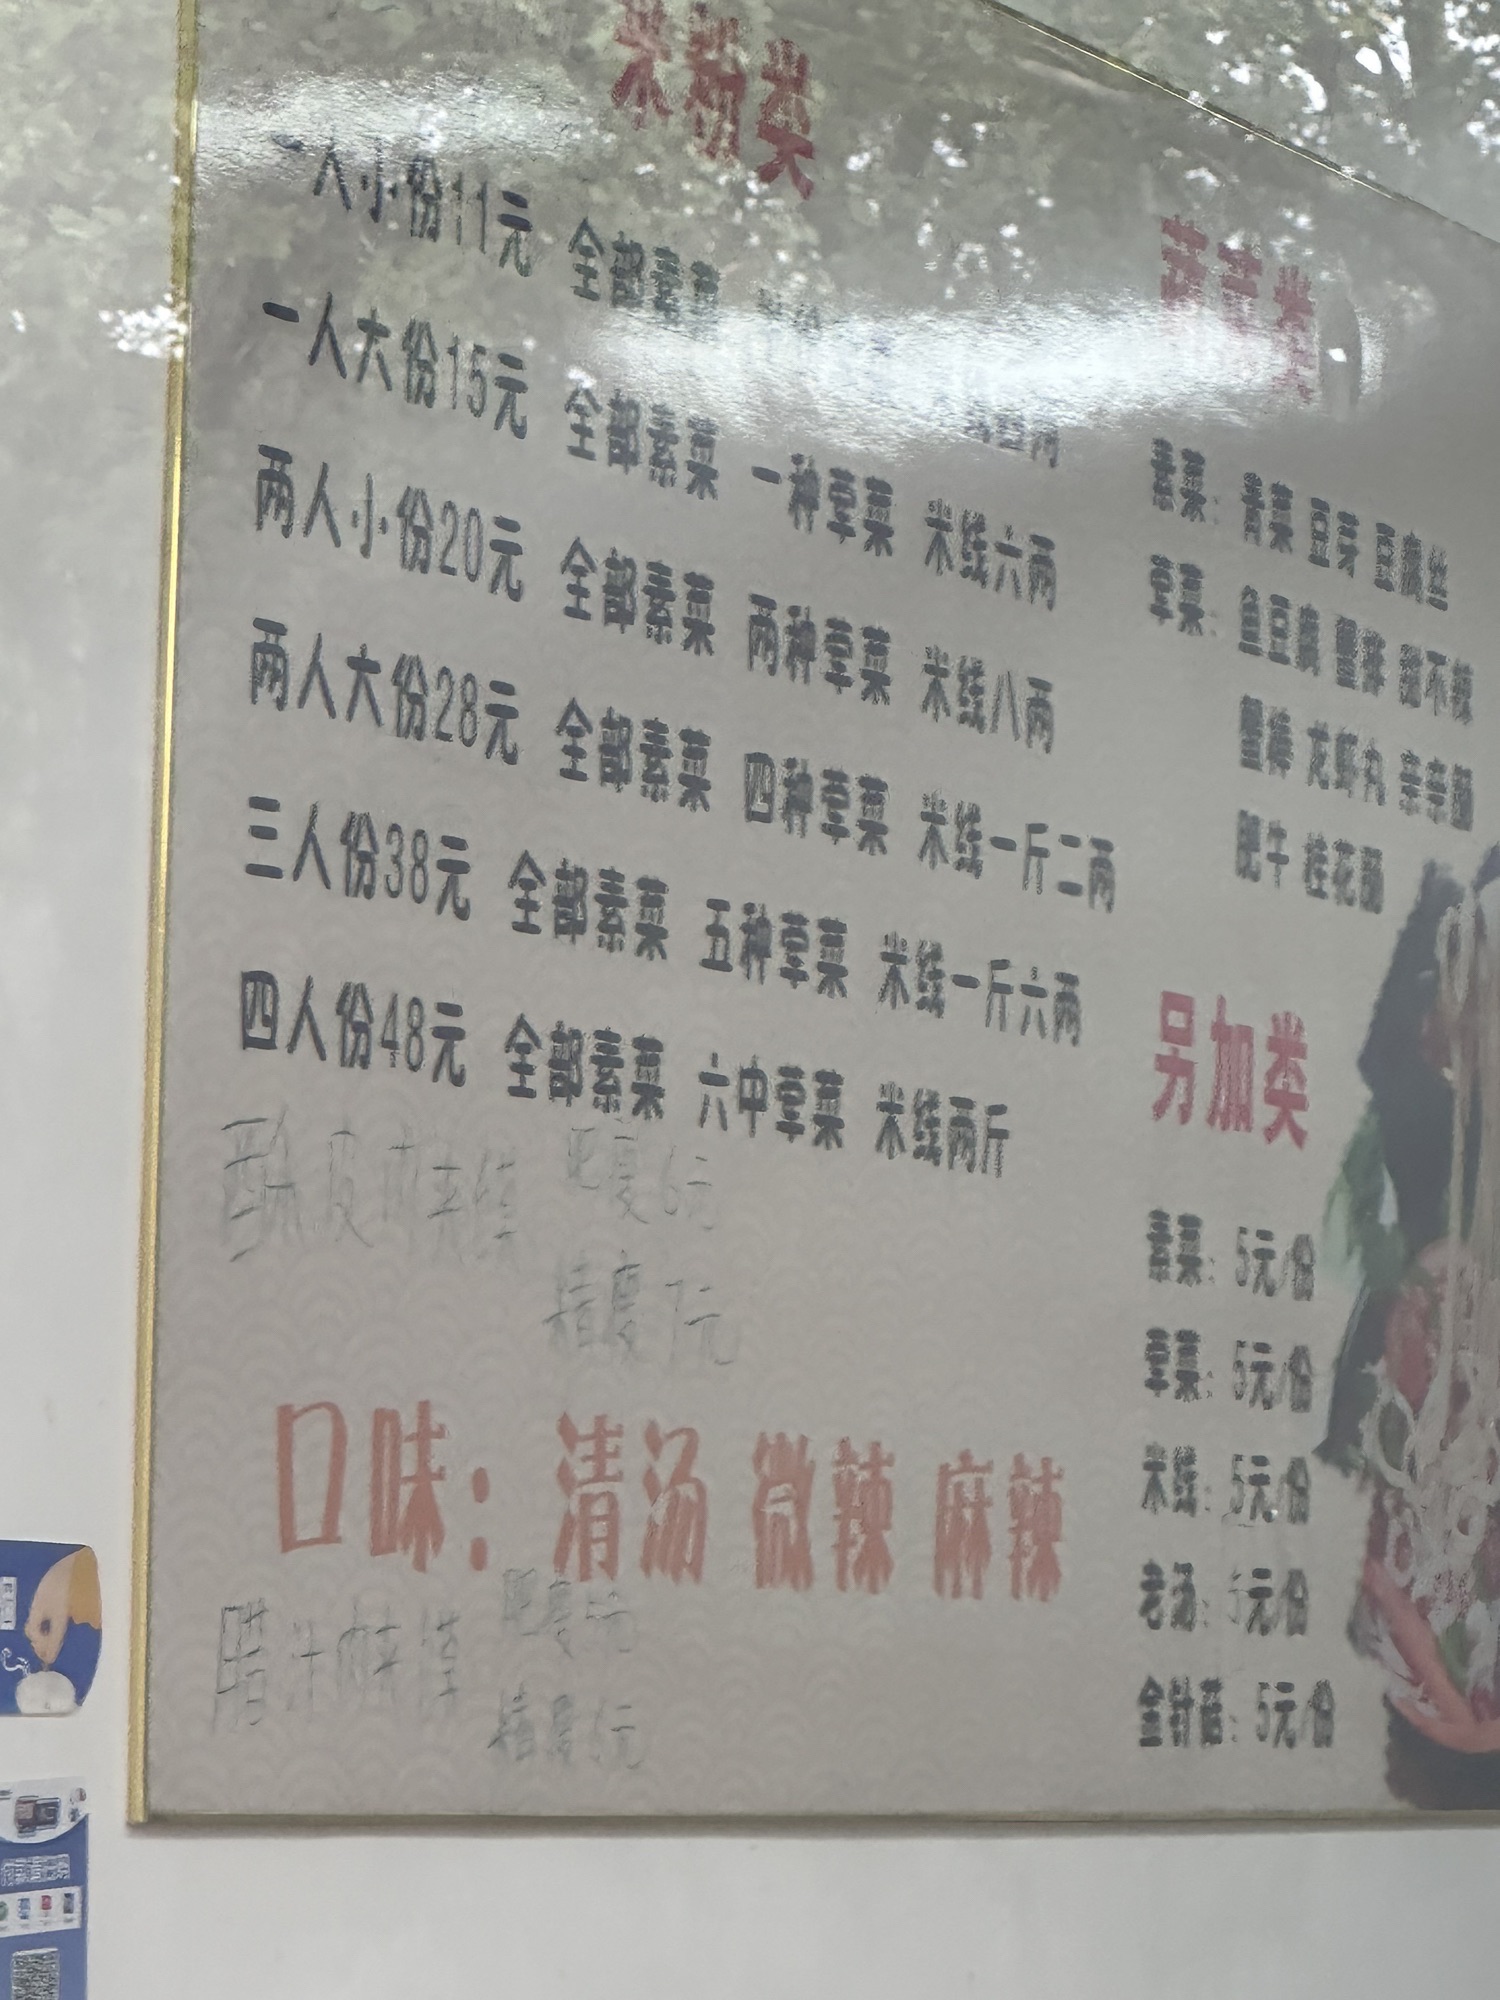 米粉类
一人小份11元 全部素菜
一人大份15元 全部素菜 一种荤菜 米线六两
两人小份20元 全部素菜 两种荤菜 米线八两
两人大份28元 全部素菜 四种荤菜 米线一斤二两
三人份38元 全部素菜 五种荤菜 米线一斤六两
四人份48元 全部素菜 六中荤菜 米线两斤
肥夏6元
精夏7元
口味：清汤 微辣 麻辣
腊汁肉夹馍
素菜：青菜 豆芽 豆腐丝
荤菜：鱼豆腐 蟹排 甜不辣
蟹棒 龙虾丸 亲亲肠
肥牛 桂花肠
另加类
素菜：5元/份
荤菜：5元/份
米线：5元/份
老汤：5元/份
金针菇：5元/份